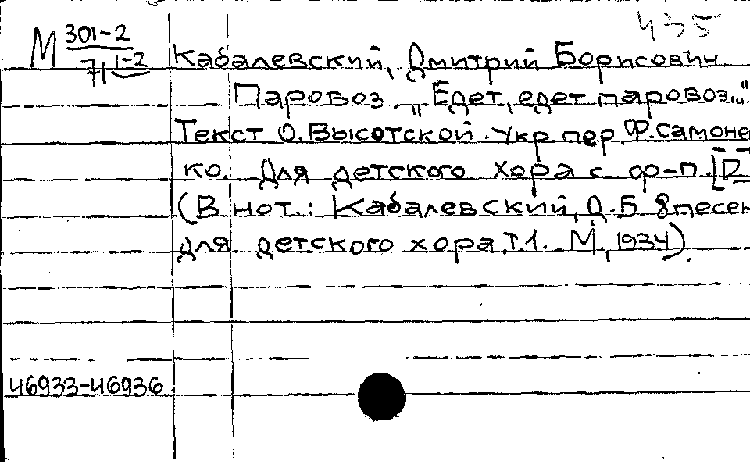 435
М 301-2
71 1-2
Кабалевский, Дмитрий Борисович
Паровоз „Едет, едет паровоз..."
Текст О. Высотской. Укр пер Ф. Самоне
ко. Для детского хора с ф-п. [D
(В нот.: Кабалевский, Д. Б 8 песен
для детского хора, Т.1. М, 1934)
46933-46936